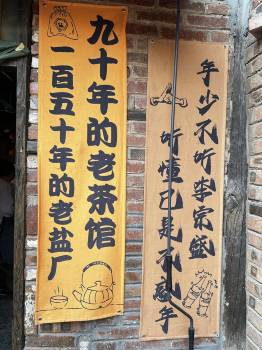 年少不听李宗盛
听懂已是不惑年
九十年的老茶馆
一百五十年的老盐厂